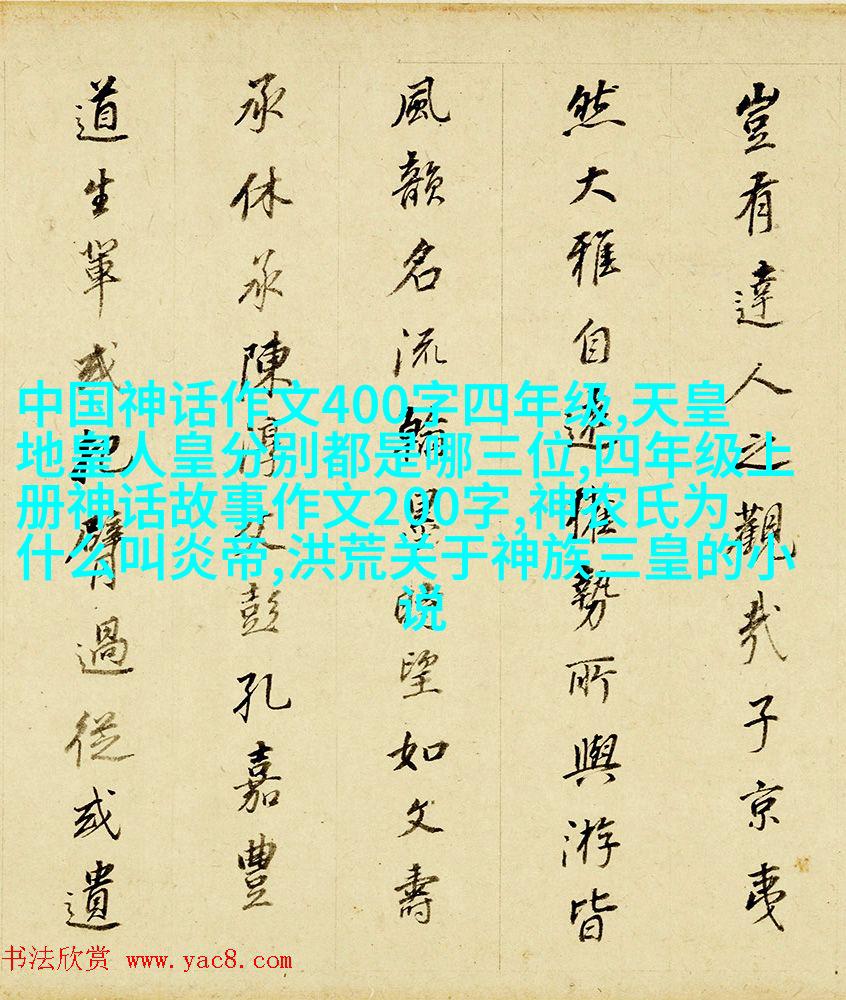 豈有達人之觀哉子京夷
然大雅自適權勢所與游皆
風韻名流翰墨時望如文壽
承休承陳淳父彭孔嘉豐
道生輩或把臂過從或遺
中国神话作文400字四年级,天皇
地皇人皇分别都是哪三位,四年级上
册神话故事作文200字,神农氏为
什么叫炎帝,洪荒关于神族三皇的小
说
书法欣赏 www.yac8.com